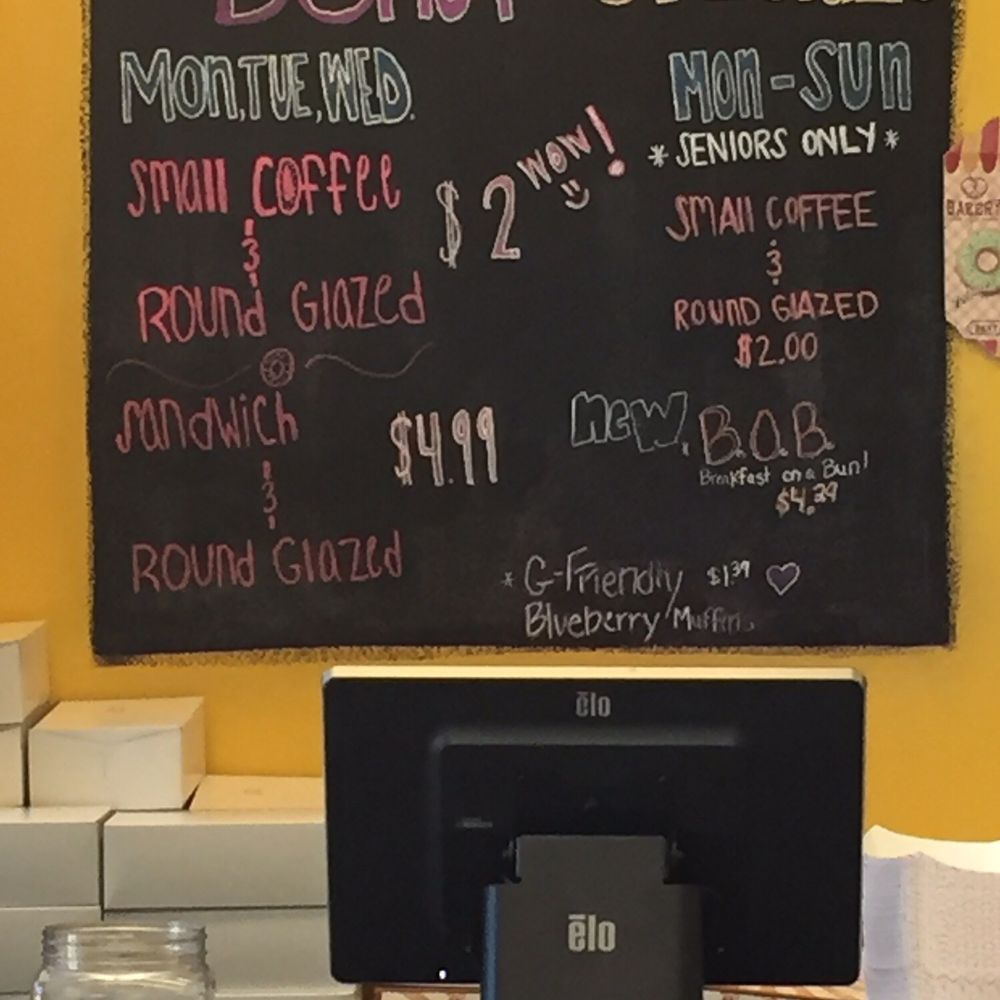 DONUT SPECIALS
MON, TUE, WED.
Small COffEE
&
ROUND GlAZEd
$2 WOW!
SandWich
&
ROUND GlAZEd
$4.99
MON-SUN
* SENIORS ONLY *
SMAll COFFEE
&
ROUND GlAZED
$2.00
NEW, B.O.B.
Breakfast on a Bun!
$4.29
* G-Friendly $1.39
Blueberry Muffins
BAKERY
ēlo
ēlo